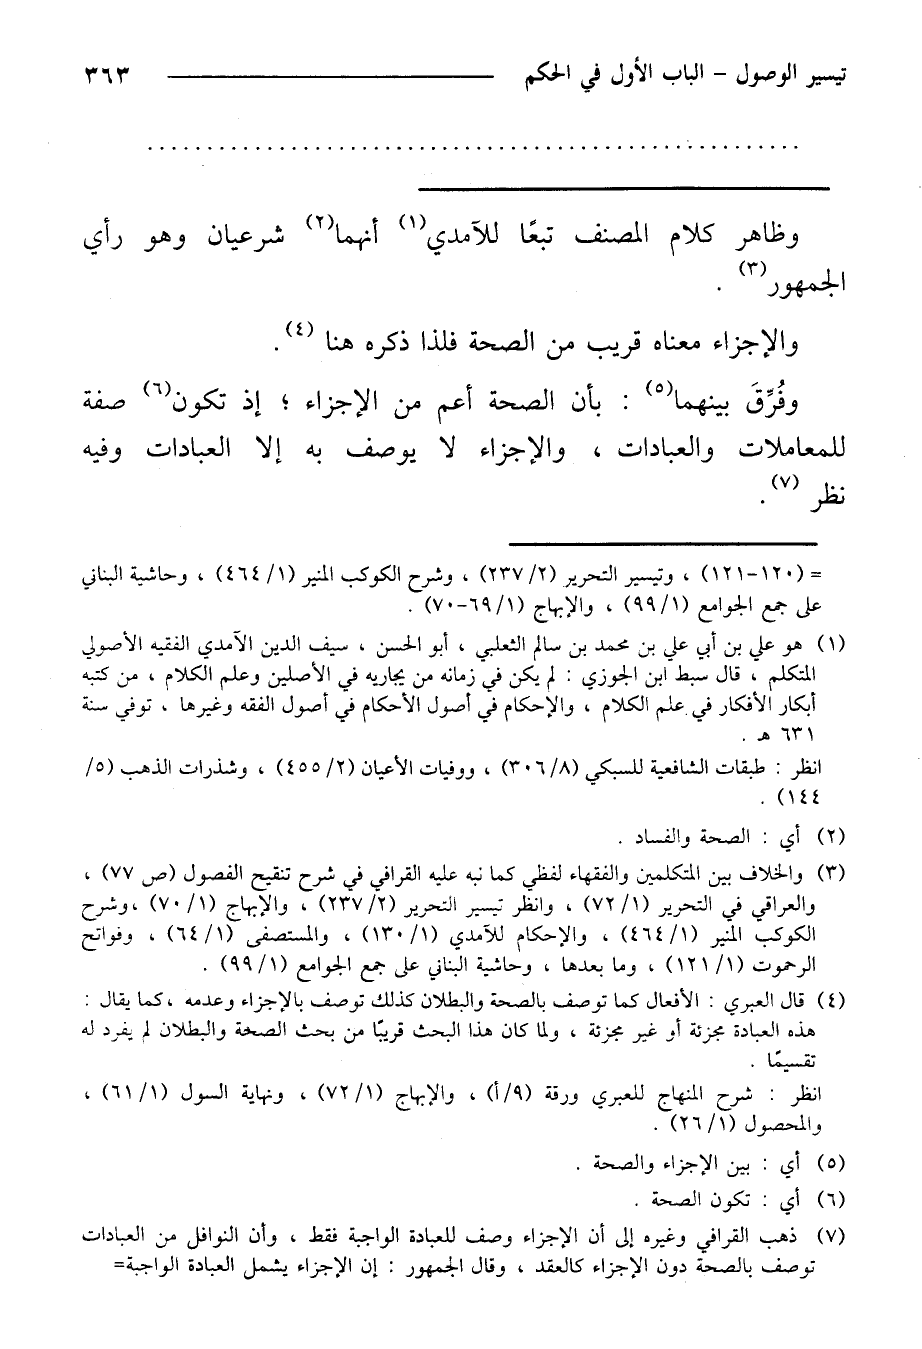 تيسير الوصول – الباب الأول في الحكم ٣٦٣
وظاهر كلام المصنف تبعًا للآمدي(١) أنهما(٢) شرعيان وهو رأي
الجمهور(٣) .
والإجزاء معناه قريب من الصحة فلذا ذكره هنا (٤).
وفُرِّقَ بينهما(٥) : بأن الصحة أعم من الإجزاء ؛ إذ تكون(٦) صفة
للمعاملات والعبادات ، والإجزاء لا يوصف به إلا العبادات وفيه
نظر (٧).
= (١٢٠-١٢١) ، وتيسير التحرير (٢/ ٢٣٧) ، وشرح الكوكب المنير (١/ ٤٦٤) ، وحاشية البناني
على جمع الجوامع (١/ ٩٩) ، والإبهاج (١/ ٦٩-٧٠) .
(١) هو علي بن أبي علي بن محمد بن سالم الثعلبي ، أبو الحسن ، سيف الدين الآمدي الفقيه الأصولي
المتكلم ، قال سبط ابن الجوزي : لم يكن في زمانه من يجاريه في الأصلين وعلم الكلام ، من كتبه
أبكار الأفكار في علم الكلام ، والإحكام في أصول الأحكام في أصول الفقه وغيرها ، توفي سنة
٦٣١ هـ .
انظر : طبقات الشافعية للسبكي (٨/ ٣٠٦) ، ووفيات الأعيان (٢/ ٤٥٥) ، وشذرات الذهب (٥/
١٤٤) .
(٢) أي : الصحة والفساد .
(٣) والخلاف بين المتكلمين والفقهاء لفظي كما نبه عليه القرافي في شرح تنقيح الفصول (ص ٧٧) ،
والعراقي في التحرير (١/ ٧٢) ، وانظر تيسير التحرير (٢/ ٢٣٧) ، والإبهاج (١/ ٧٠) ،وشرح
الكوكب المنير (١/ ٤٦٤) ، والإحكام للآمدي (١/ ١٣٠) ، والمستصفى (١/ ٦٤) ، وفواتح
الرحموت (١/ ١٢١) ، وما بعدها ، وحاشية البناني على جمع الجوامع (١/ ٩٩) .
(٤) قال العبري : الأفعال كما توصف بالصحة والبطلان كذلك توصف بالإجزاء وعدمه ،كما يقال :
هذه العبادة مجزئة أو غير مجزئة ، ولما كان هذا البحث قريبًا من بحث الصحة والبطلان لم يفرد له
تقسيمًا .
انظر : شرح المنهاج للعبري ورقة (٩/ أ) ، والإبهاج (١/ ٧٢) ، ونهاية السول (١/ ٦١) ،
والمحصول (١/ ٢٦) .
(٥) أي : بين الإجزاء والصحة .
(٦) أي : تكون الصحة .
(٧) ذهب القرافي وغيره إلى أن الإجزاء وصف للعبادة الواجبة فقط ، وأن النوافل من العبادات
توصف بالصحة دون الإجزاء كالعقد ، وقال الجمهور : إن الإجزاء يشمل العبادة الواجبة=